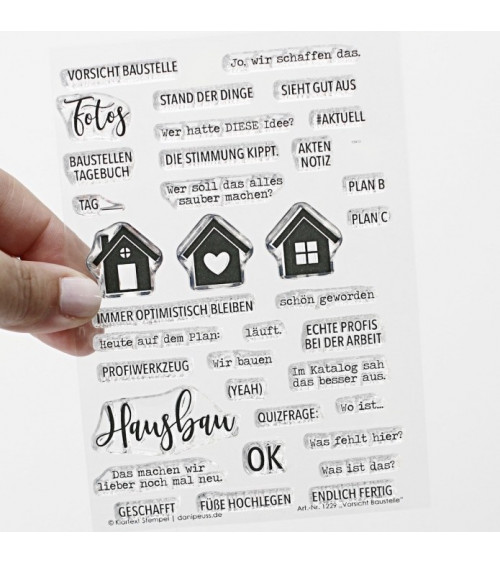 VORSICHT BAUSTELLE
Jo, wir schaffen das.
Fotos
STAND DER DINGE
SIEHT GUT AUS
Wer hatte DIESE Idee?
#AKTUELL
BAUSTELLEN
TAGEBUCH
DIE STIMMUNG KIPPT.
AKTEN
NOTIZ
Wer soll das alles
sauber machen?
PLAN B
TAG
PLAN C
IMMER OPTIMISTISCH BLEIBEN
schön geworden
Heute auf dem Plan:
läuft.
ECHTE PROFIS
BEI DER ARBEIT
PROFIWERKZEUG
Wir bauen
Im Katalog sah
das besser aus.
(YEAH)
Hausbau
QUIZFRAGE:
Wo ist...
OK
Was fehlt hier?
Das machen wir
lieber noch mal neu.
Was ist das?
GESCHAFFT
FÜßE HOCHLEGEN
ENDLICH FERTIG
© Klartext Stempel | danipeuss.de
Art.-Nr. 1229 „Vorsicht Baustelle"